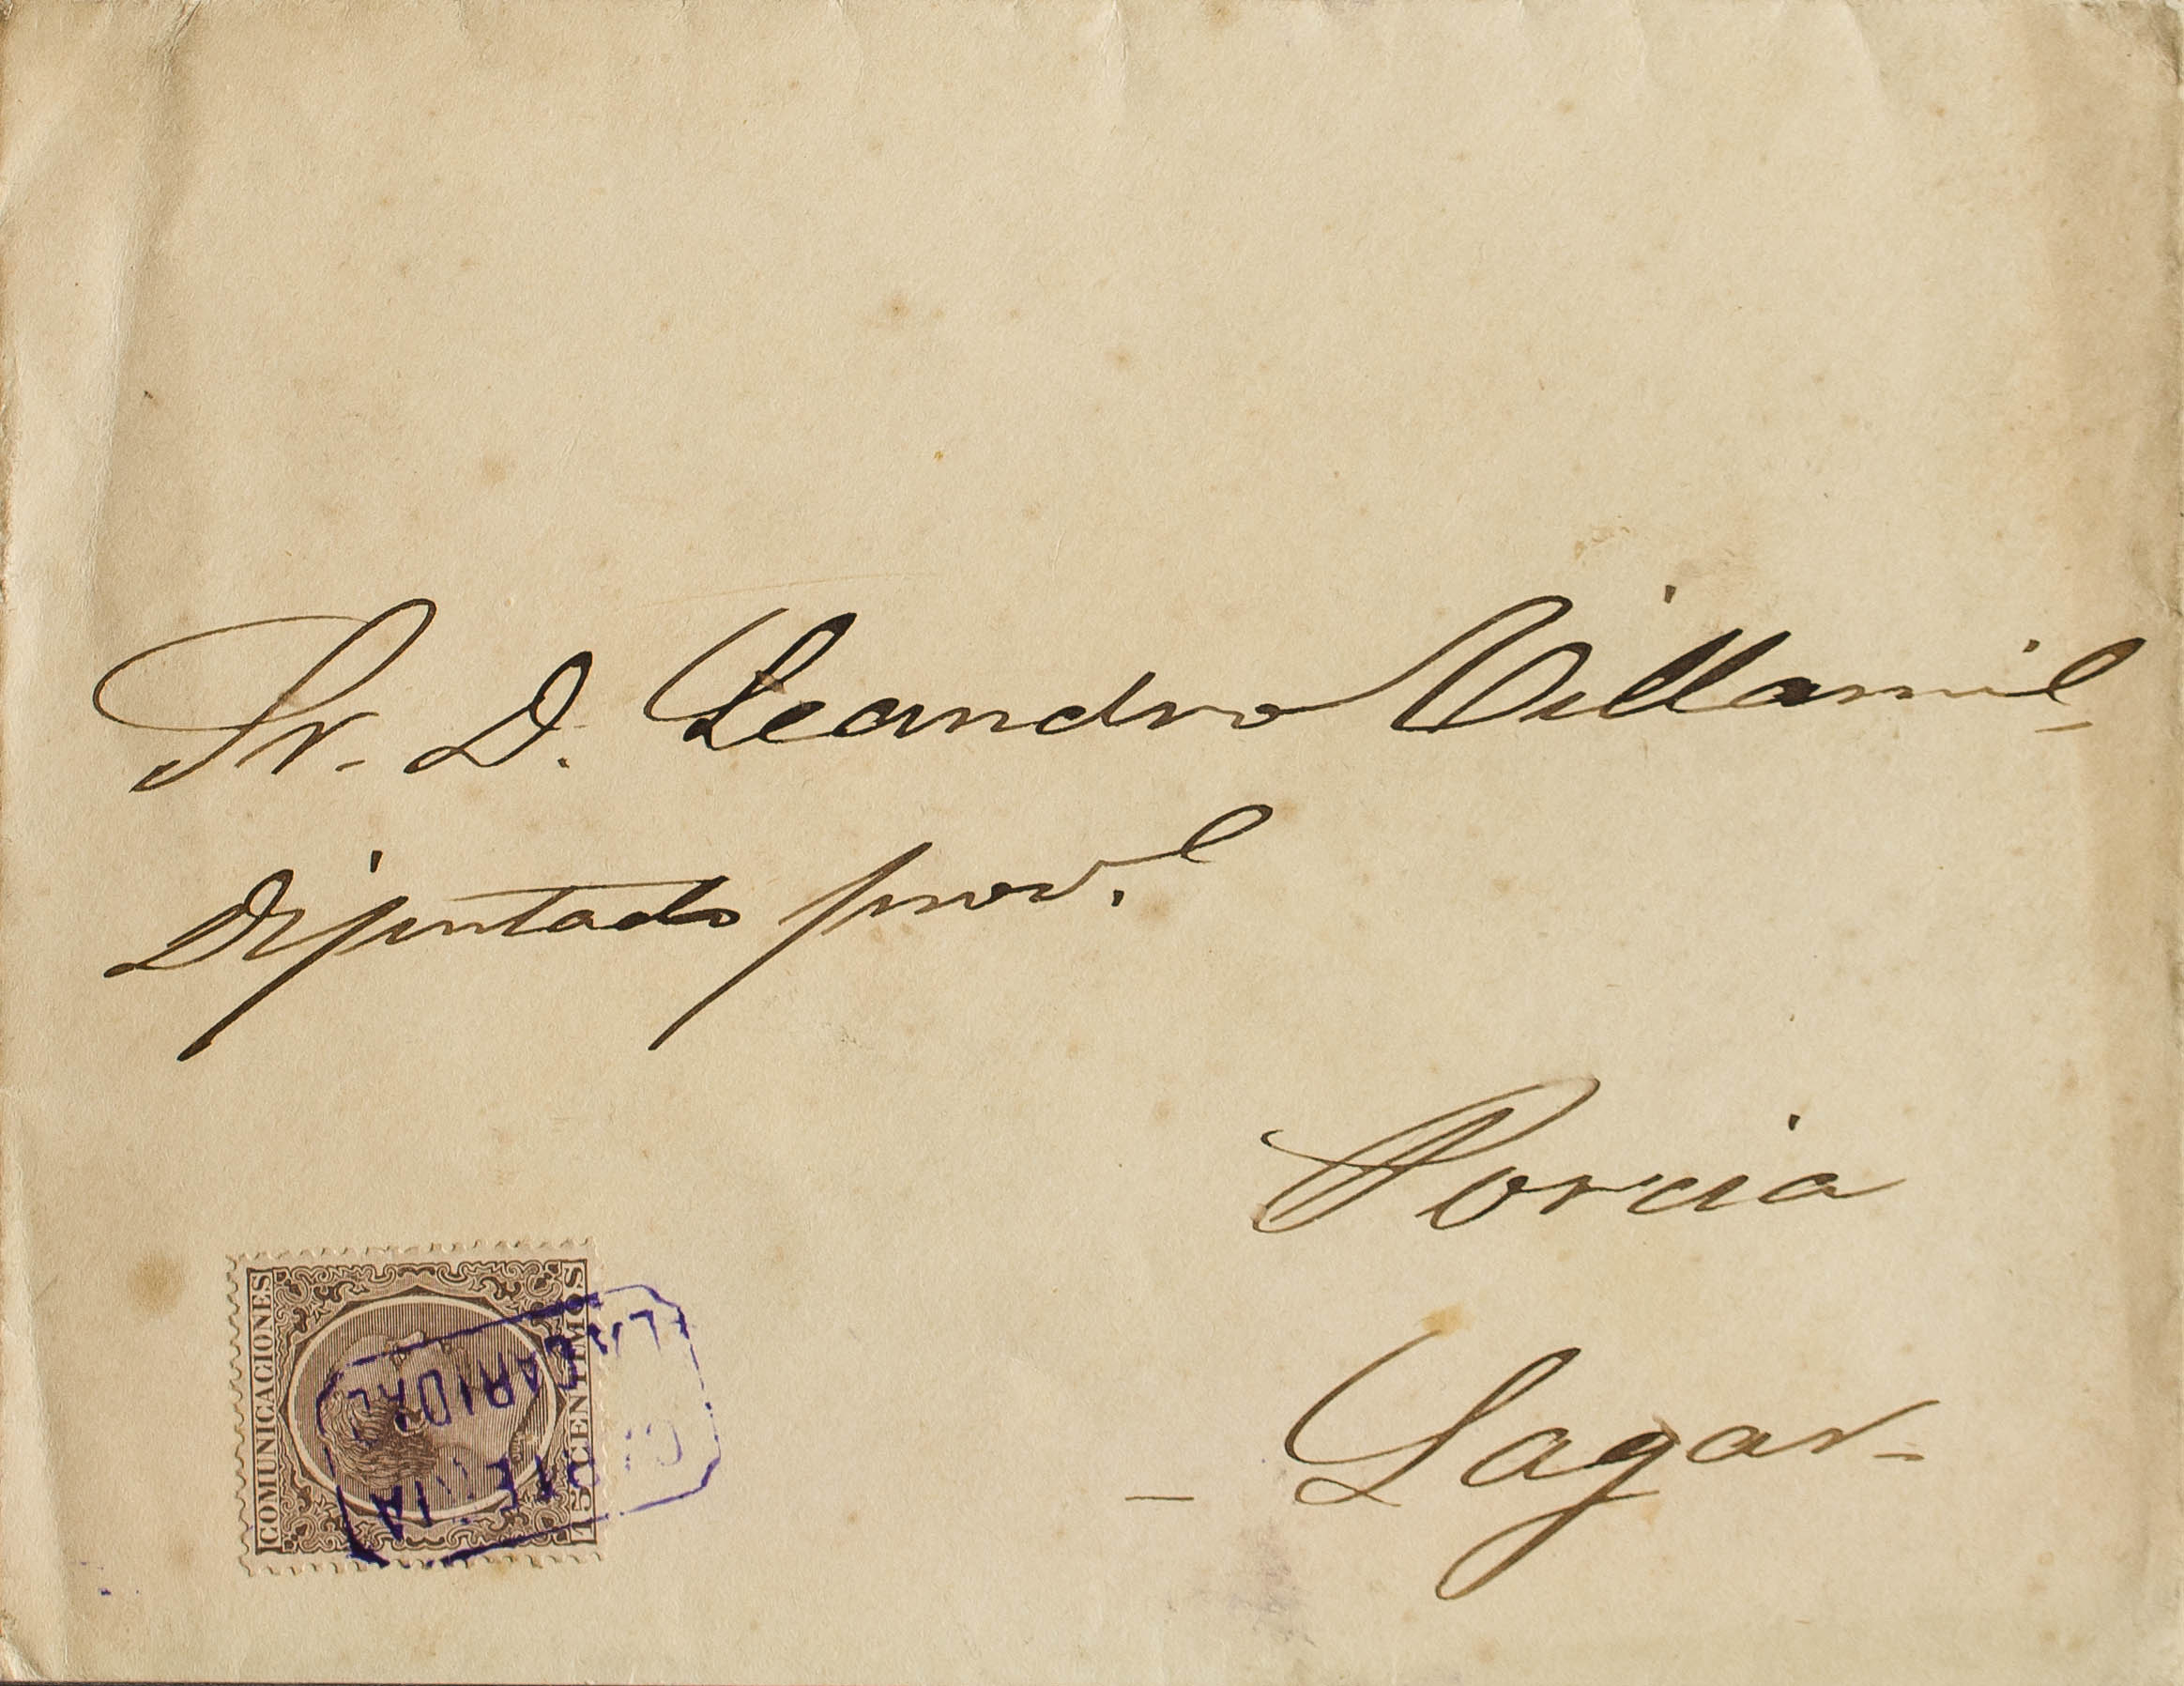 Sr. D. Leandro Villamil
Diputado prov.l
Porcia
- Lagar-
COMUNICACIONES
15 CENTIMOS
CARTERIA
LA CARIDAD